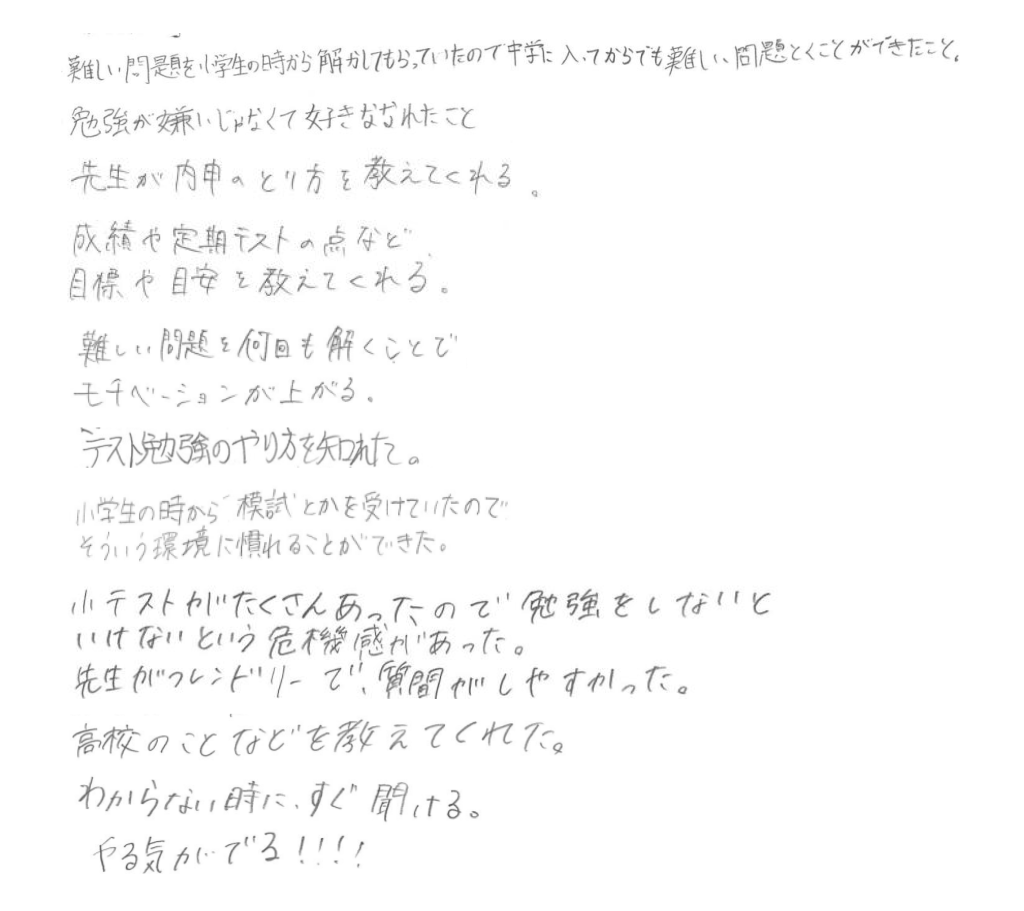 難しい問題を小学生の時から解かしてもらっていたので中学に入ってからでも難しい、問題とくことができたこと。
勉強が嫌いじゃなくて好きななれたこと
先生が内申のとり方を教えてくれる。
成績や定期テストの点など
目標や目安を教えてくれる。
難しい問題を何回も解くことで
モチベーションが上がる。
テスト勉強のやり方を知れた。
小学生の時から模試とかを受けていたので
そういう環境に慣れることができた。
小テストがたくさんあったので勉強をしないと
いけないという危機感があった。
先生がフレンドリーで、質問がしやすかった。
高校のことなどを教えてくれた。
わからない時に、すぐ聞ける。
やる気がでる!!!!